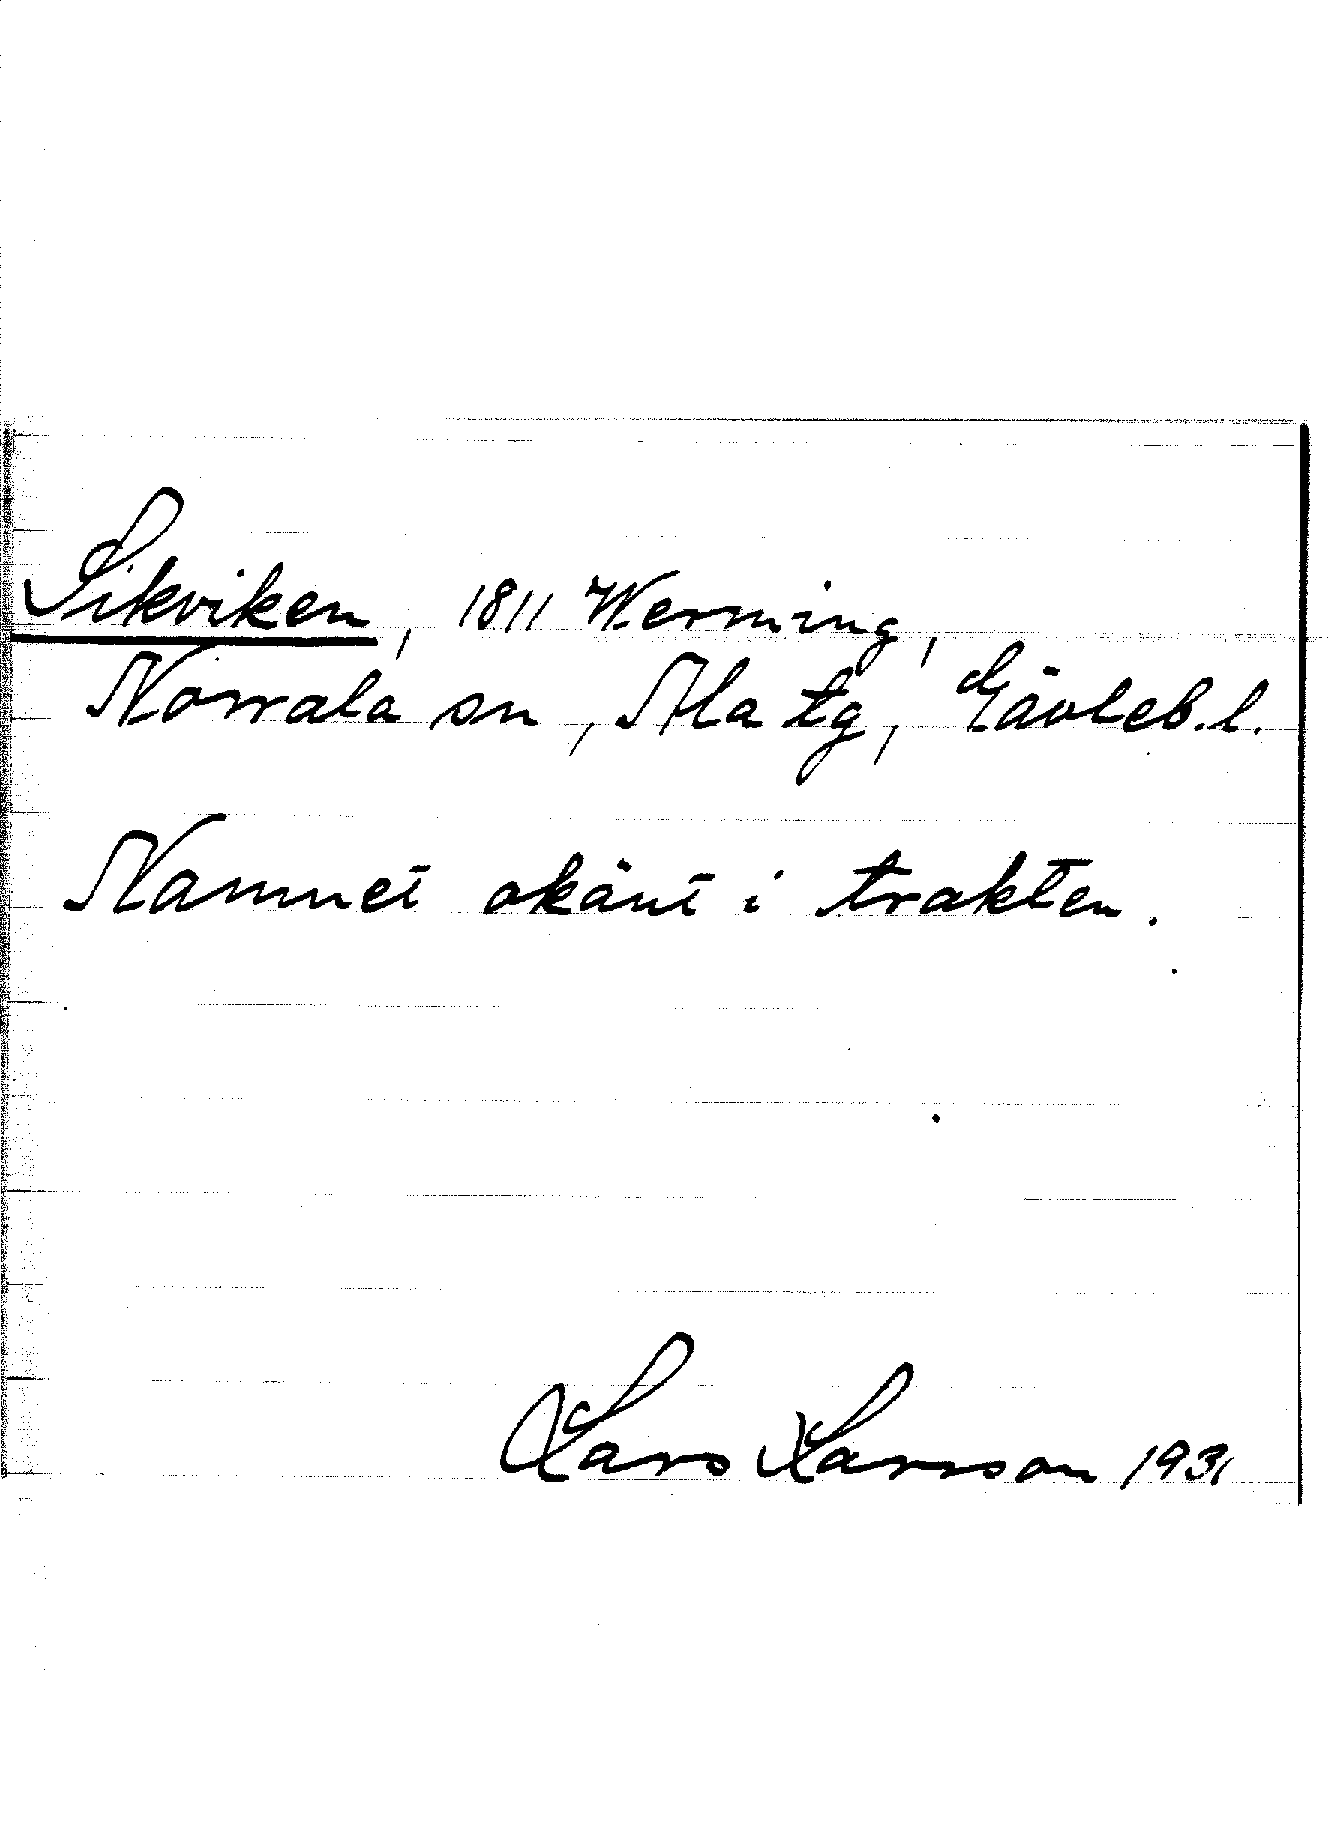 Sikviken, 1811 Werming,
Norrala sn, Ala tg, Gävleb. l.
Namnet okänt i trakten.
Lars Larsson 1931